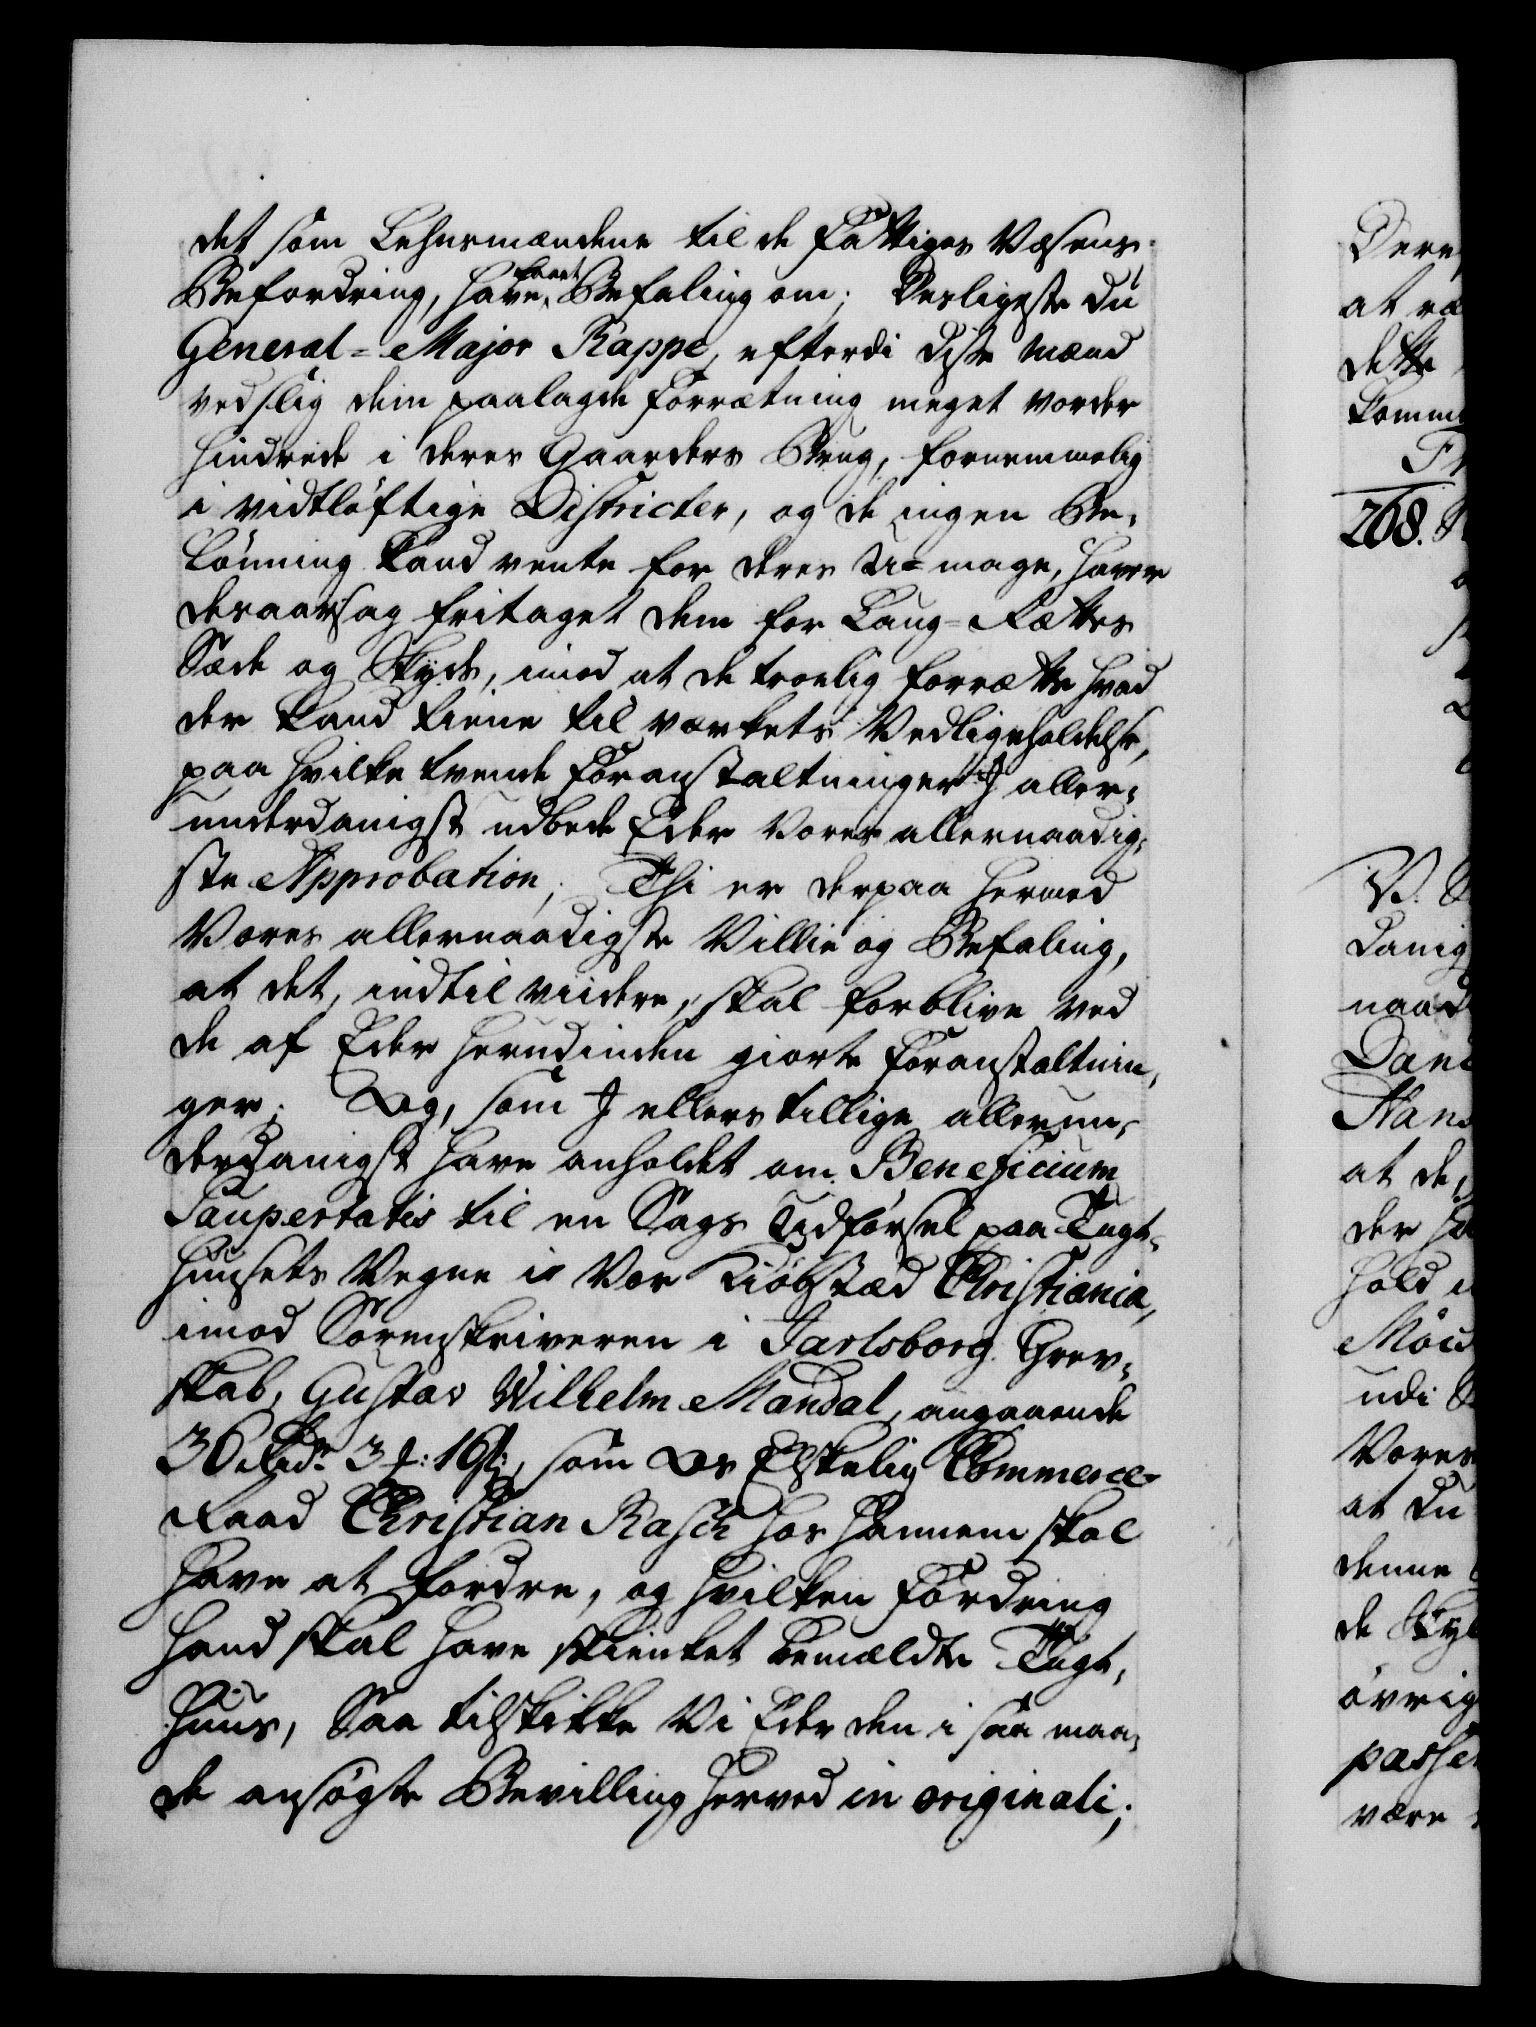 det som Lehnsmændene til de Fattiges Væsens-
Befordring, have faaet Befaling om; Desligeste du
General-Major Kappe, efterdi disse Mænd
ved slig dem paalagde Forrætning meget vorder
hindrede i deres Gaarders Brug, fornemmelig
i vidtløftige Districter, og de ingen Be-
lønning kand vente for deres U-mage, haver
deraarsag fritaget dem for Laug-Rættes
Sæde og Skyds, imod at de troelig forrætte hvad
der kand tiene til værkets Vedligeholdelse,
paa hvilke tvende Foranstaltninger I aller-
underdanigst udbede Eder Vores allernaadig-
ste Approbation; Thi er derpaa hermed
Vores allernaadigste Villie og Befaling,
at det, indtil viidere, skal forblive ved
de af Eder herudinden giorte Foranstaltnin-
ger; Og, som I ellers tillige allerun-
derdanigst have anholdet om Beneficium
Paupertatis til en Sags Udførsel paa Tugt-
huusets Vegne i Vor Kiøbstæd Christiania,
imod Sorenskriveren i Jarlsborg Grev-
skab, Gustav Wilhelm Mandal, angaaende
36 Rdr. 3 ℔: 16 ß, som Os Elskelig Commerce-
Raad Christian Rasch hos hannem skal
have at fordre, og hvilken Fordring
hand skal have skienket bemældte Tugt-
huus, Saa tilskikke Vi Eder den i saa maa-
de ansøgte Bevilling herved in originali;
Der
at
dette
komm
268.
V.
danig
naad
Dan
Hans
at de
der
hold
udi
Vores
at du
denne
de
øvrig
passe
være